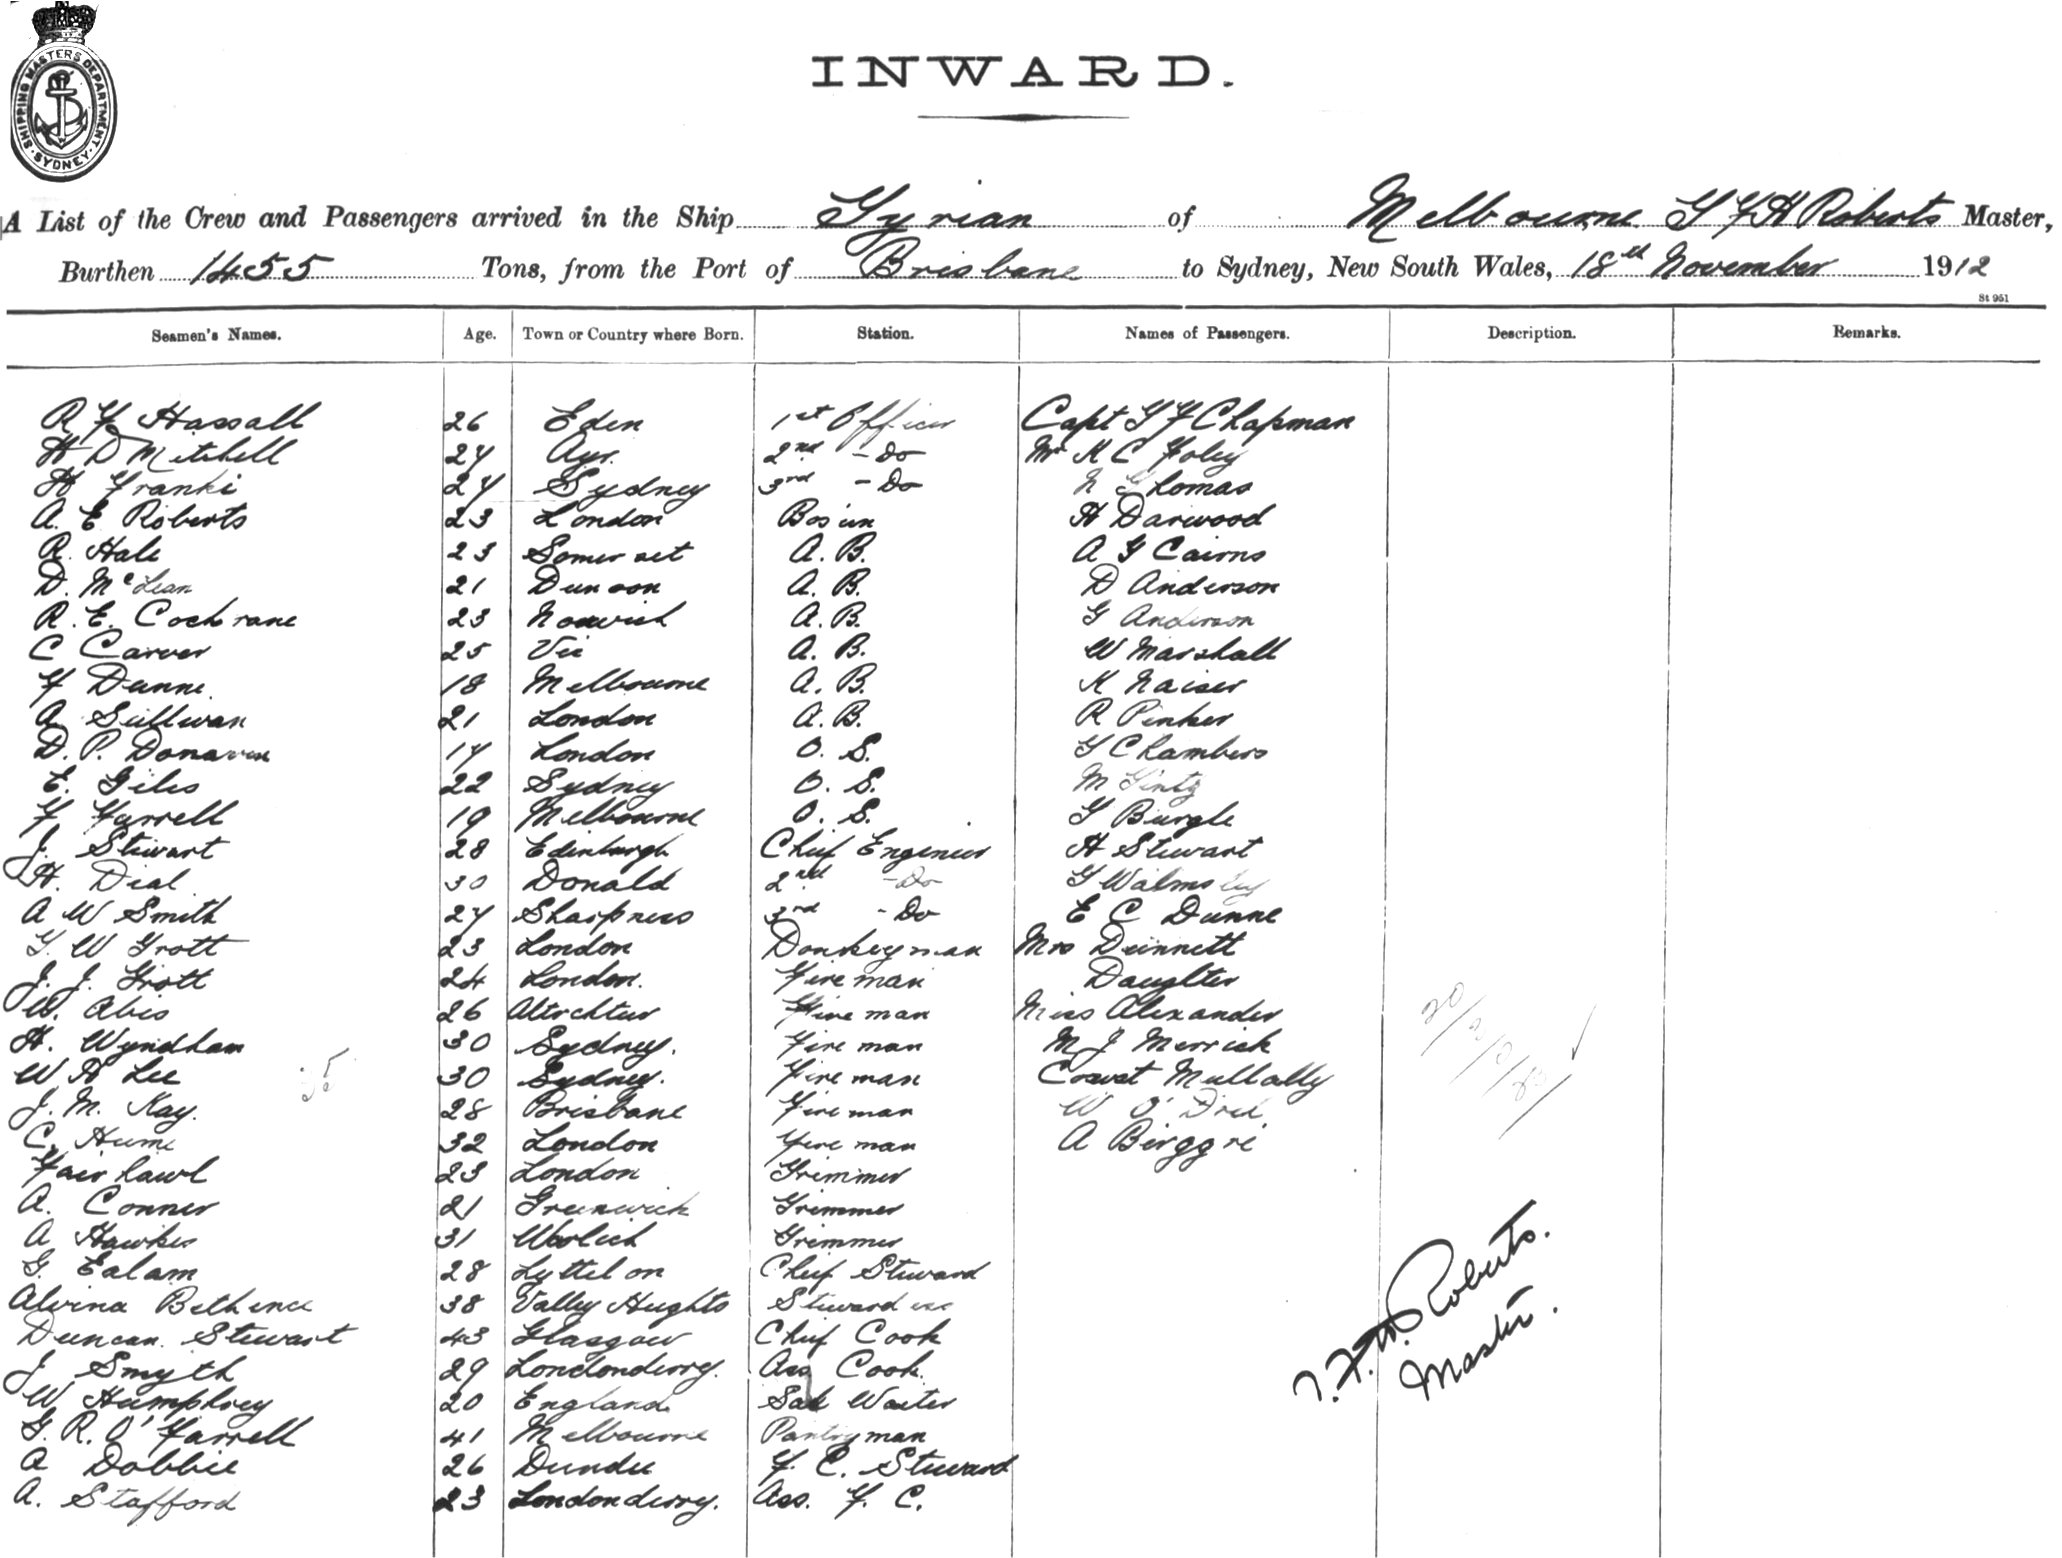 SHIPPING MASTERS DEPARTMENT
SYDNEY
INWARD.
A List of the Crew and Passengers arrived in the Ship Tyrian of Melbourne T F H Roberts Master,
Burthen 1455 Tons, from the Port of Brisbane to Sydney, New South Wales, 18th November 1912
St 951
Seamen's Names. Age. Town or Country where Born. Station. Names of Passengers. Description. Remarks.
R F Hassall 26 Eden 1st Officer Capt T F Chapman
H D Mitchell 24 Ayr. 2nd - Do Mr K C Foley
H Franki 24 Sydney 3rd - Do Thomas
A. E Roberts 23 London Bosun H Darwood
R. Hale 23 Somerset A. B. A G Cairns
D. McLean 21 Dunoon A. B. D Anderson
R. E. Cochrane 23 Norwich A. B. G Anderson
C Carver 25 Vic A. B. W Marshall
F Dunne. 18 Melbourne A. B. K Naiser
A Sullivan 21 London A. B. R Pinker
D. P. Donavan 17 London O. S. T Chambers
E. Giles 22 Sydney O. S. M
F Farrell 19 Melbourne O. S. T Burgle
J. Stewart 28 Edinburgh Chief Engineer H Stewart
H. Dial 30 Donald 2nd - Do G Walmsley
A W Smith 24 Sharpness 3rd - Do E C Dunne
T. W Trott 23 London Donkeyman Mrs Dunnett
J. J. Trott 24 London. Fireman Daughter
W. Abis 26 Fireman Miss Alexander
H. Wyndham 30 Sydney. Fireman M J Merrick
W H Lee 30 Sydney. Fireman Mullally
J. M. Kay. 28 Brisbane Fireman W
C. Hume 32 London Fireman A
23 London Trimmer
A. Conner 21 Greenwich Trimmer
A Hawkes 31 Woolich Trimmer
G. Ealam 28 Lyttelon Chief Steward
Alvina Bethence 38 Valley Heights Stewardess
Duncan Stewart 43 Glasgow Chief Cook
J Smyth 29 Londonderry. Ass Cook
W Humphrey 20 England. Sal Waiter
G. R. O'Farrell 41 Melbourne Pantryman
A Dobbie 26 Dundee F. C. Steward
A. Stafford 23 Londonderry. Ass. F. C.
T. F. H. Roberts.
Master.